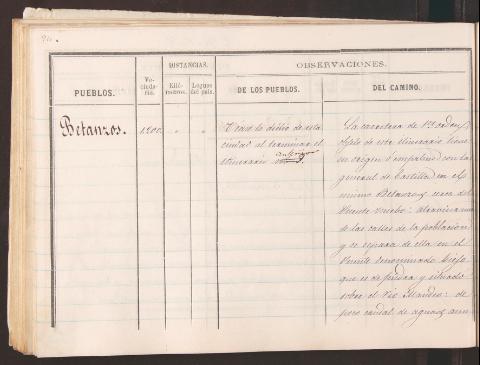 DISTANCIAS.
OBSERVACIONES.
PUEBLOS.
Ve-
cinda-
rio.
Kiló-
metros.
Leguas
del país.
DE LOS PUEBLOS.
DEL CAMINO.
Betanzos.
1200.
" "
Véase lo dicho de esta
ciudad al terminar el
itinerario anterior
La carretera de 1er orden,
objeto de este itinerario tiene
su origen ó empalme con la
general de Castilla, en el
mismo Betanzos, cerca del
Puente nuevo: atraviesa una
de las calles de la poblacion
y se separa de ella en el
Puente denominado Viejo
que es de piedra y situado
sobre el rio Mandeo: de
poco caudal de aguas, aun